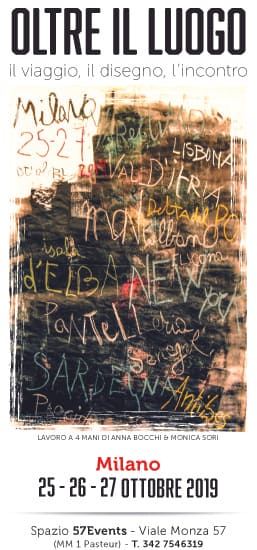 OLTRE IL LUOGO
il viaggio, il disegno, l'incontro
Milano
25-27
LISBONA
VAL D'ITRIA
Delta del PO
isola
d'ELBA NEW
York
PANTELLeria
Senegal
SARDEGNA
Antibes
Procida
LAVORO A 4 MANI DI ANNA BOCCHI & MONICA SORI
Milano
25 - 26 - 27 OTTOBRE 2019
Spazio 57Events - Viale Monza 57
(MM 1 Pasteur) - T. 342 7546319